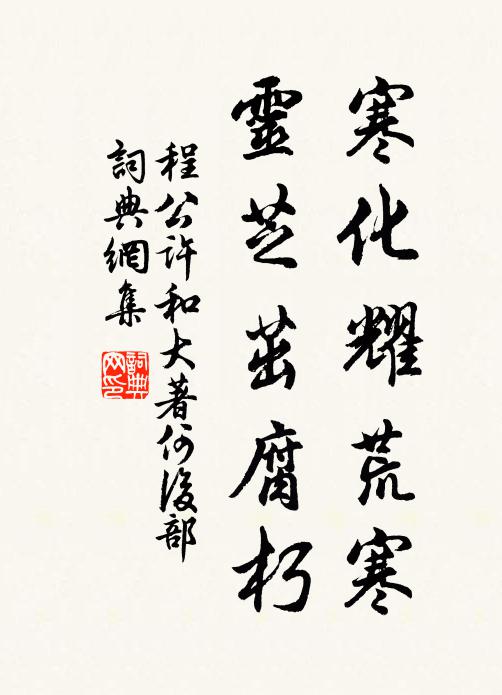 寒化耀荒寒
靈芝茁腐朽
程公許和大著何後部
詞典網集
詞典网印